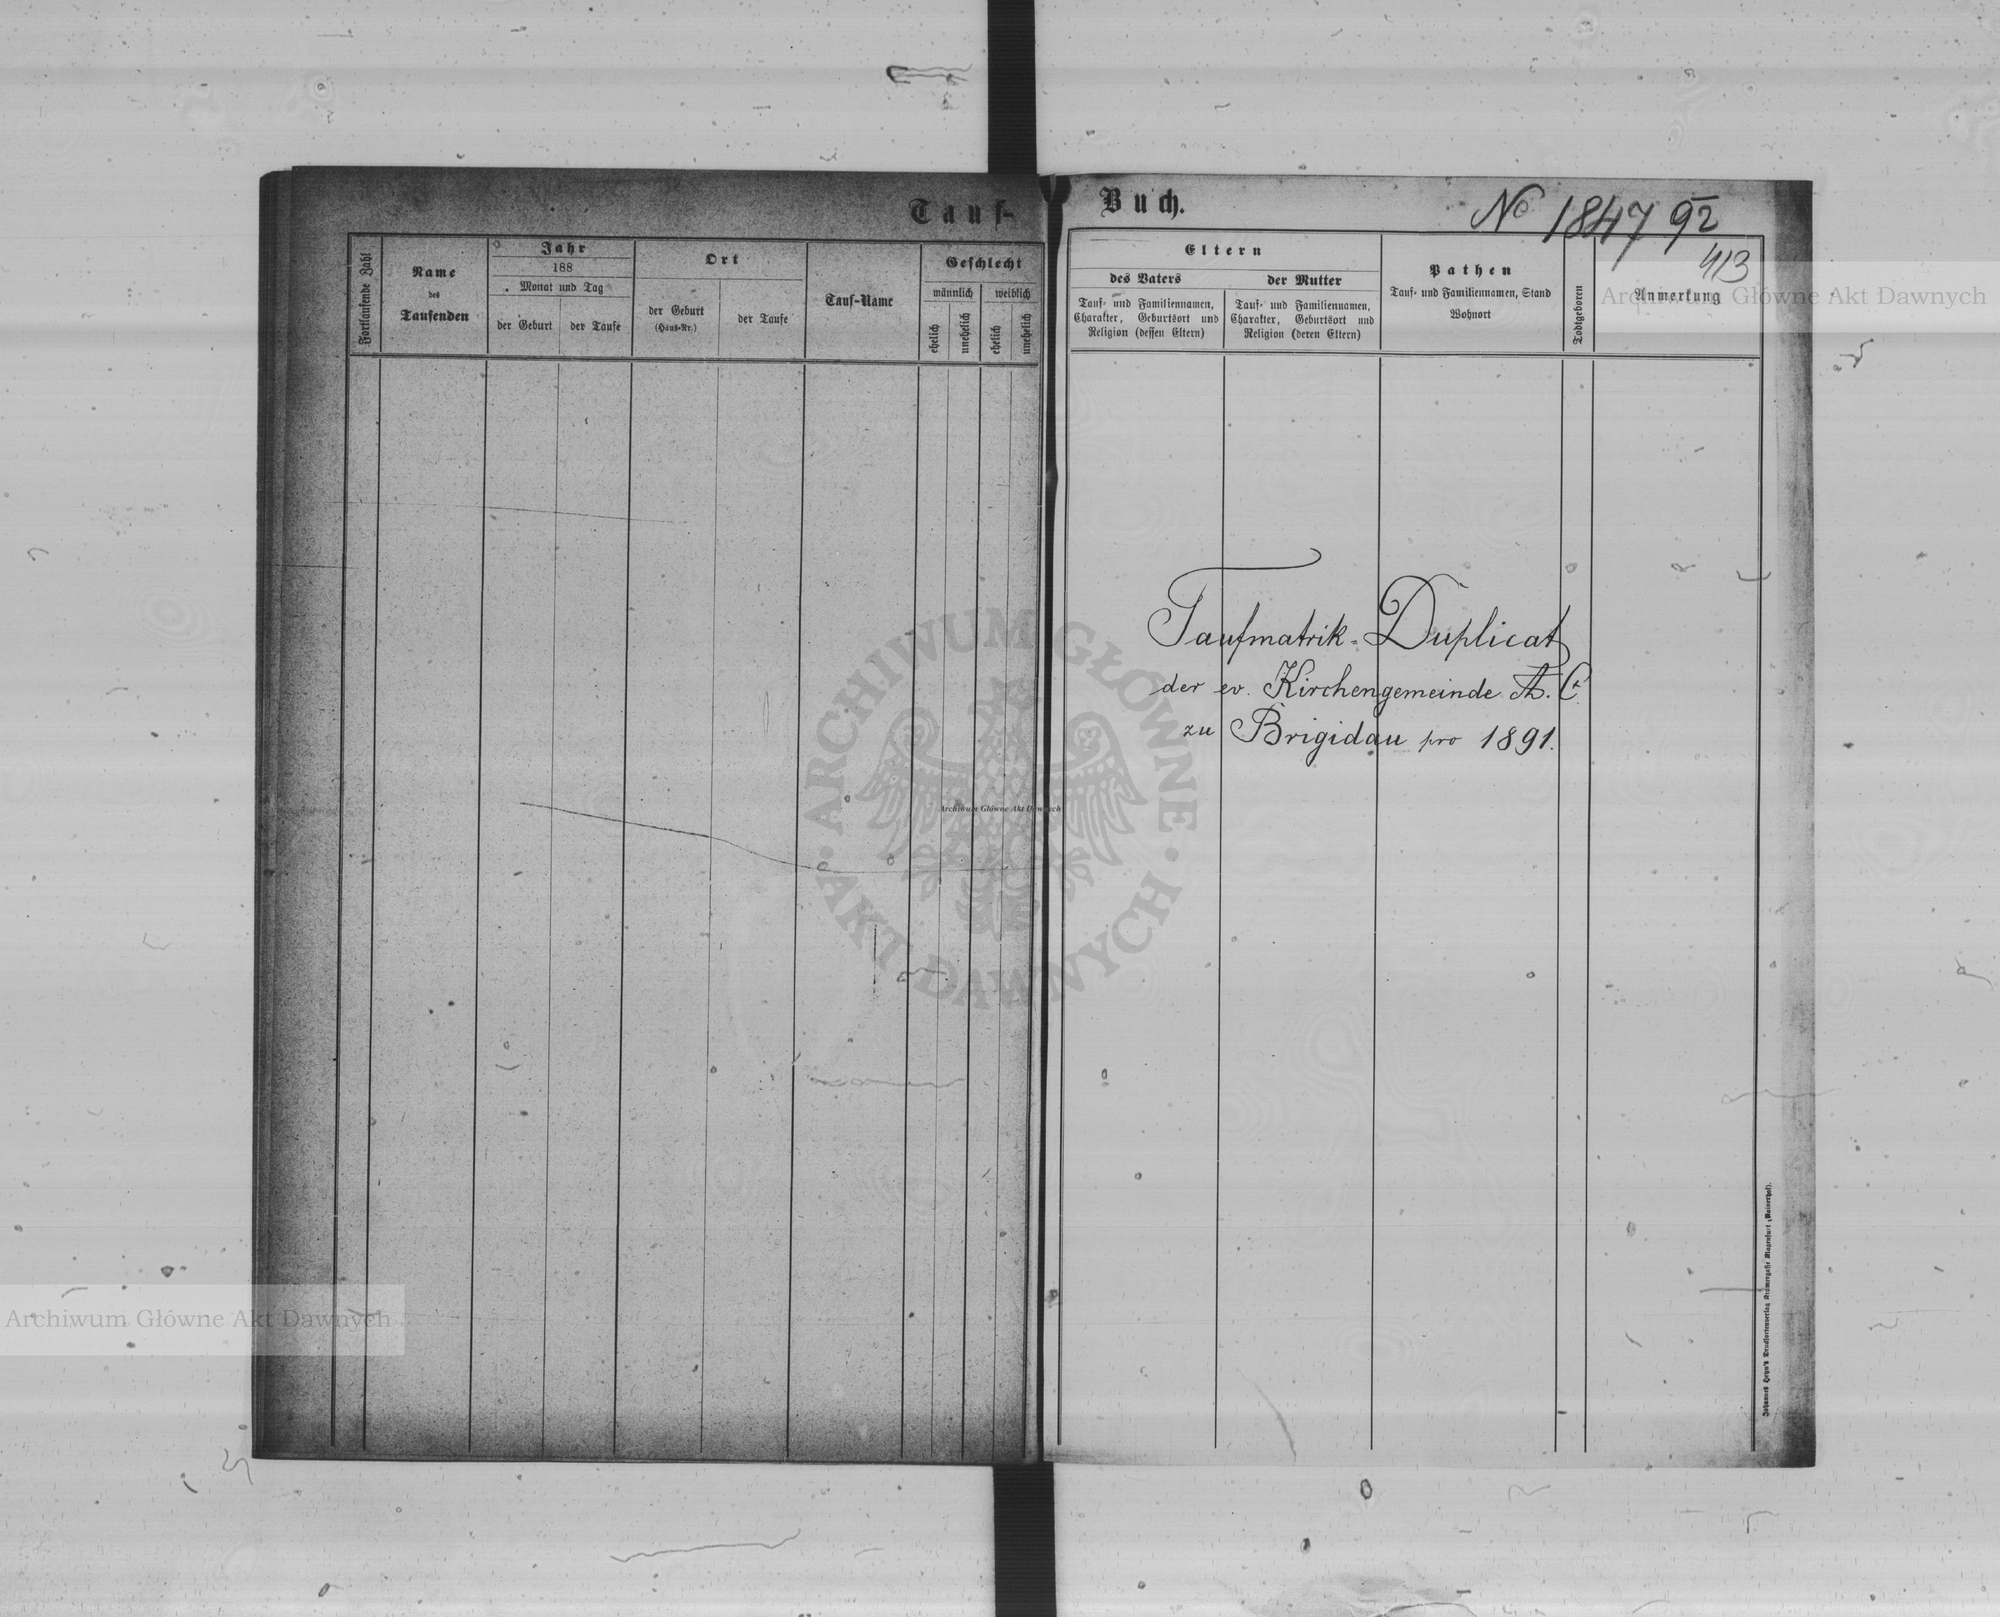 Tauf-
Buch.
No 1847 92
413
Fortlaufende Zahl
Name
des
Taufenden
Jahr
188
Monat und Tag
der Geburt
der Taufe
Ort
der Geburt
(Haus-Nr.)
der Taufe
Tauf-Name
Geschlecht
männlich
weiblich
ehelich
unehelich
ehelich
unehelich
Eltern
des Vaters
Tauf- und Familiennamen,
Charakter, Geburtsort und
Religion (dessen Eltern)
der Mutter
Tauf- und Familiennamen,
Charakter, Geburtsort und
Religion (deren Eltern)
Pathen
Tauf- und Familiennamen, Stand
Wohnort
Todtgeboren
Anmerkung
Archiwum Główne Akt Dawnych
Taufmatrik-Duplicat
der ev. Kirchengemeinde A. C.
zu Brigidau pro 1891.
ARCHIWUM GŁÓWNE
AKT DAWNYCH
Archiwum Główne Akt Dawnych
Archiwum Główne Akt Dawnych